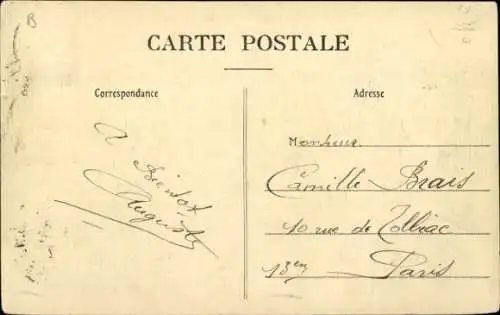 B
CARTE POSTALE
Correspondance
Adresse
A
Bientot
Auguste
Monsieur
Camille Brais
10 rue de Tolbiac
13em
Paris